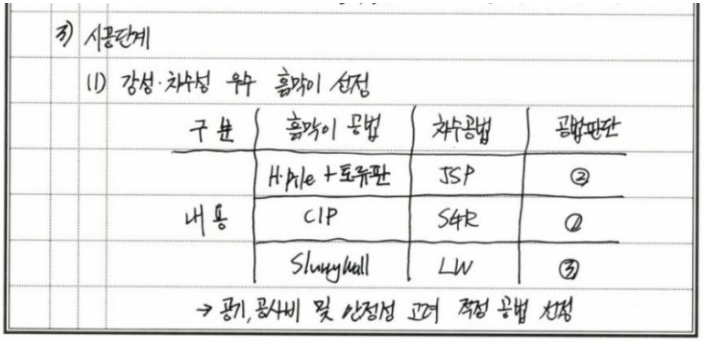 3) 시공단계
(1) 강성·차수성 우수 흙막이 선정
구분 흙막이 공법 차수공법 공법판단
H-pile + 토류판 JSP ②
내용 CIP SGR ①
Slurry Wall LW ③
→ 공기, 공사비 및 안정성 고려 적정 공법 선정